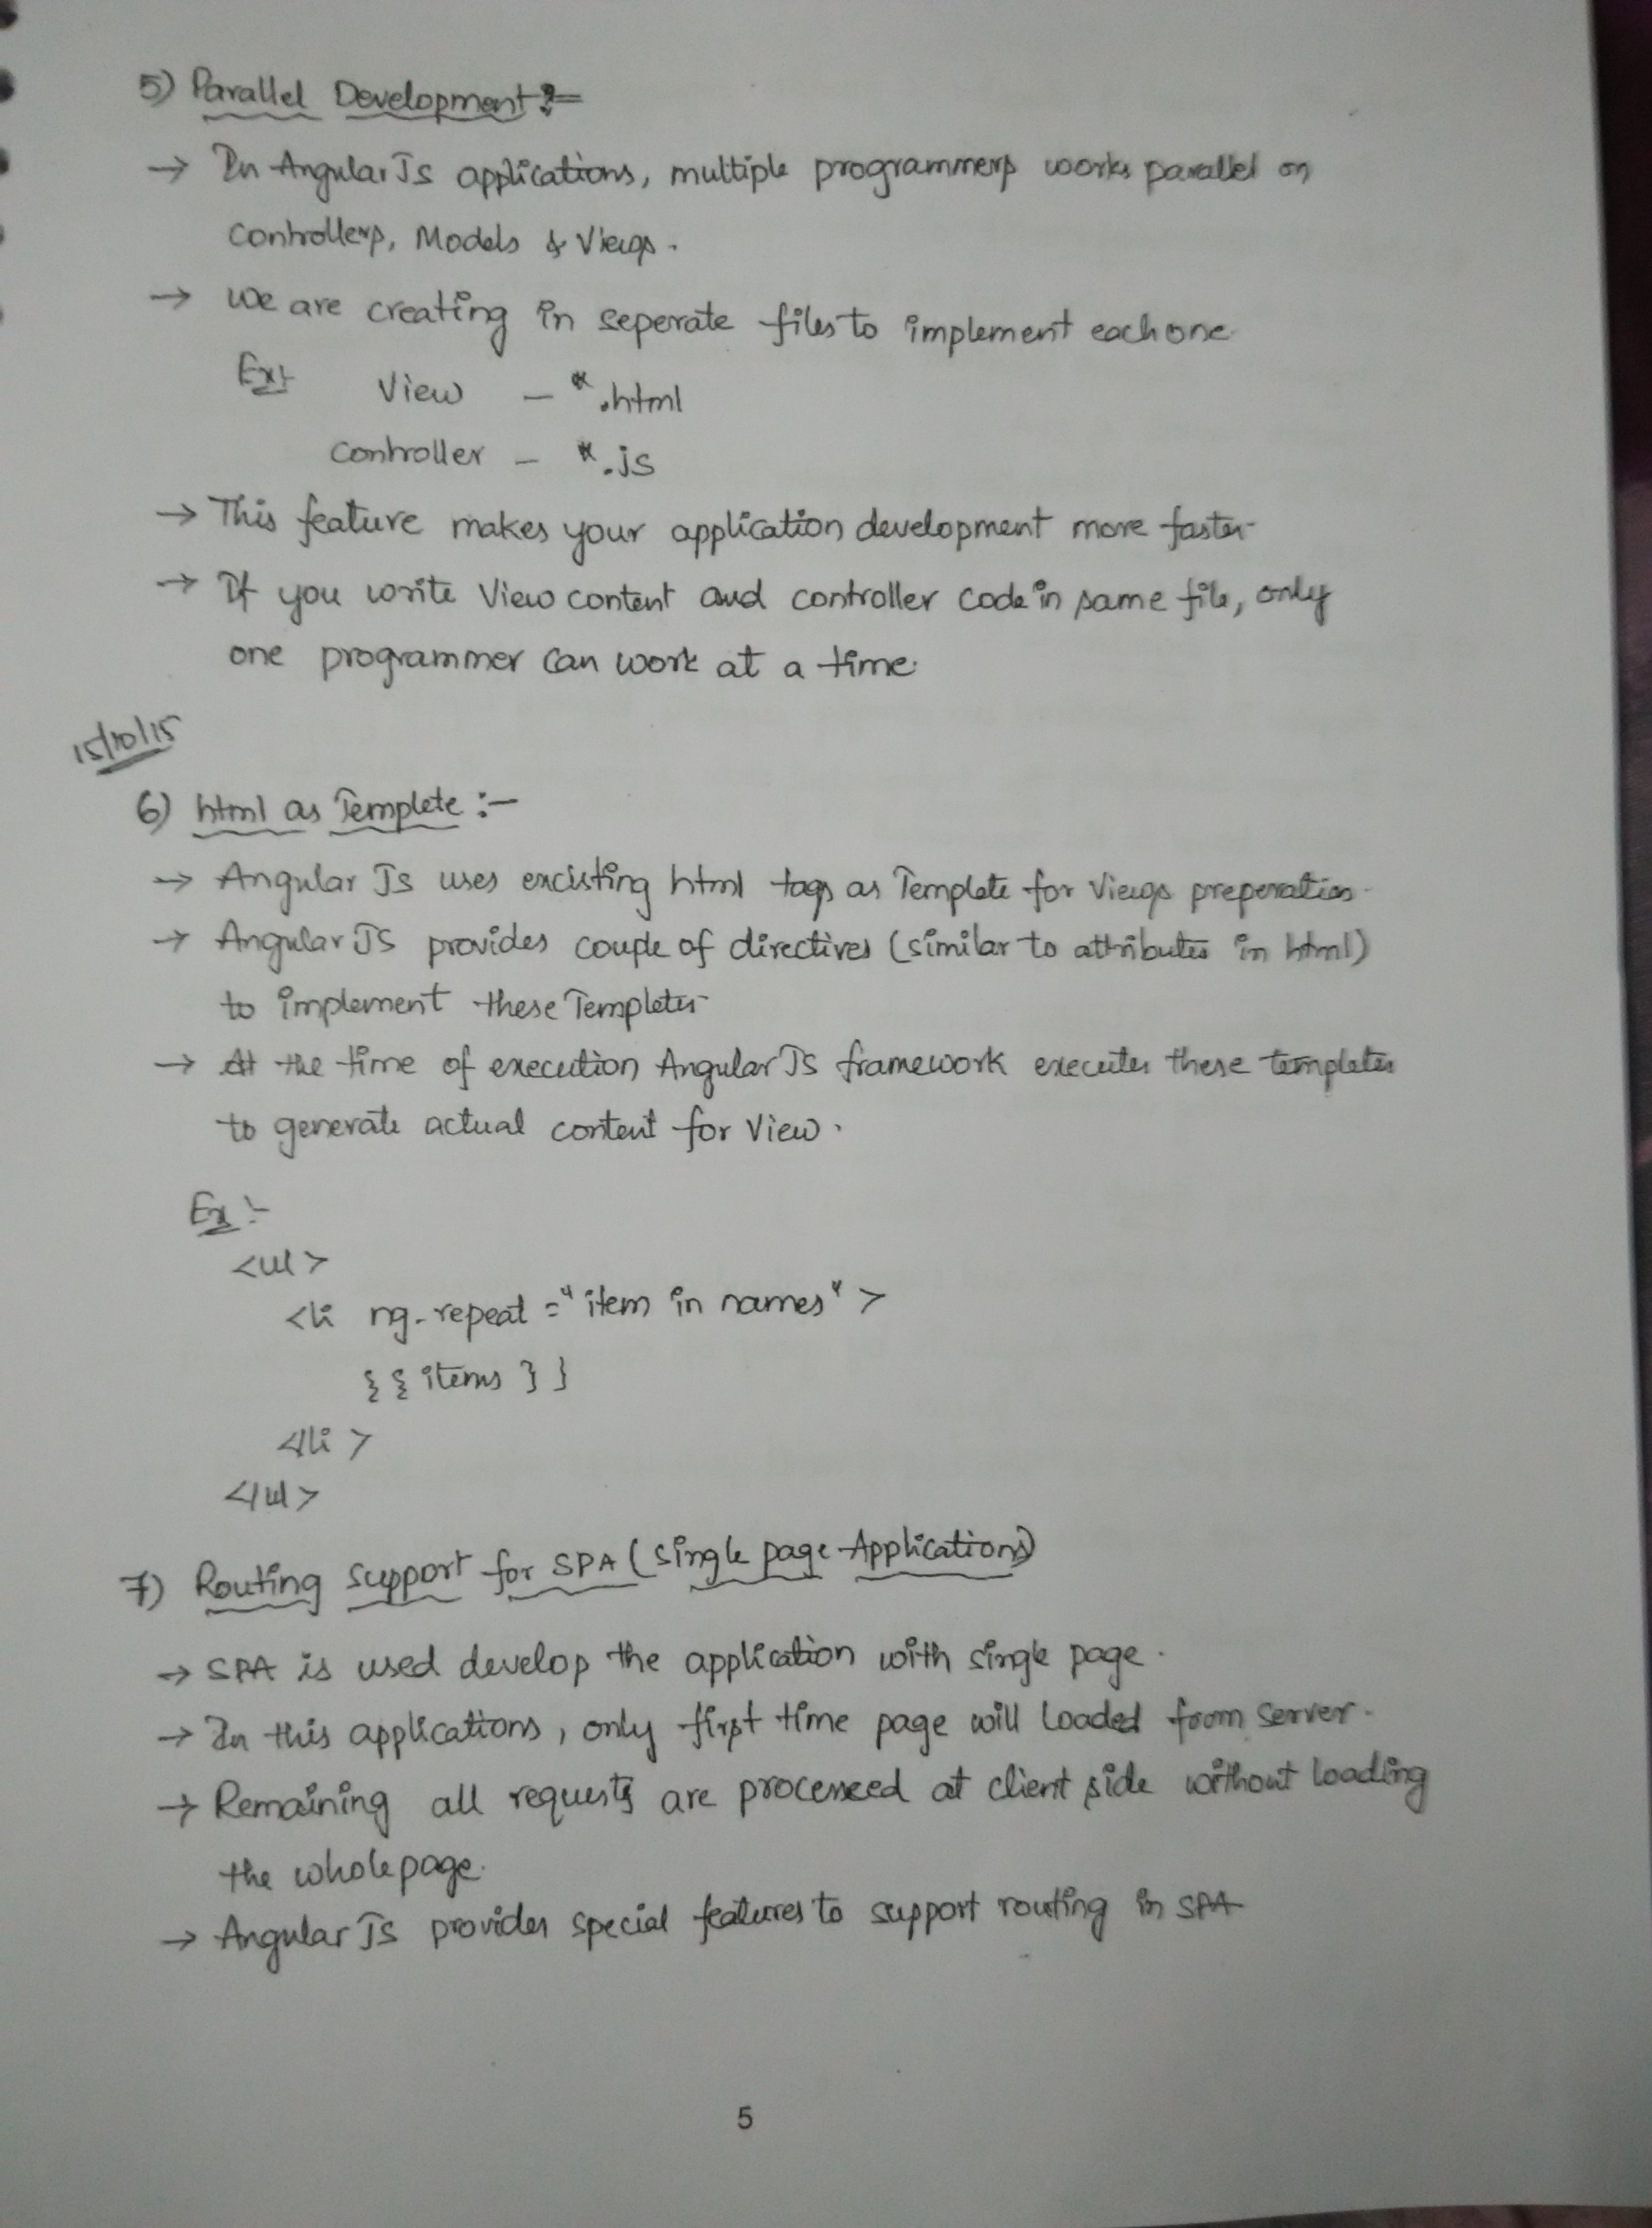 5) Parallel Development :-
→ In AngularJS applications, multiple programmers works parallel on
controllers, Models & Views.
→ we are creating in seperate files to implement each one.
Ex:- View - *.html
controller - *.js
→ This feature makes your application development more faster.
→ If you write View content and controller code in same file, only
one programmer can work at a time.
15/10/15
6) html as Templete :-
→ Angular JS uses excisting html tags as Templete for Views preperation.
→ Angular JS provides couple of directives (similar to attributes in html)
to implement these Templetes
→ At the time of execution AngularJS framework executes these templetes
to generate actual content for View.
Ex :-
<ul>
<li ng-repeat = "item in names" >
{{ items }}
</li >
</ul>
7) Routing support for SPA (single page Applications)
→ SPA is used develop the application with single page.
→ In this applications, only first time page will Loaded from server.
→ Remaining all requests are processed at client side without loading
the whole page.
→ Angular JS provides special features to support routing in SPA
5